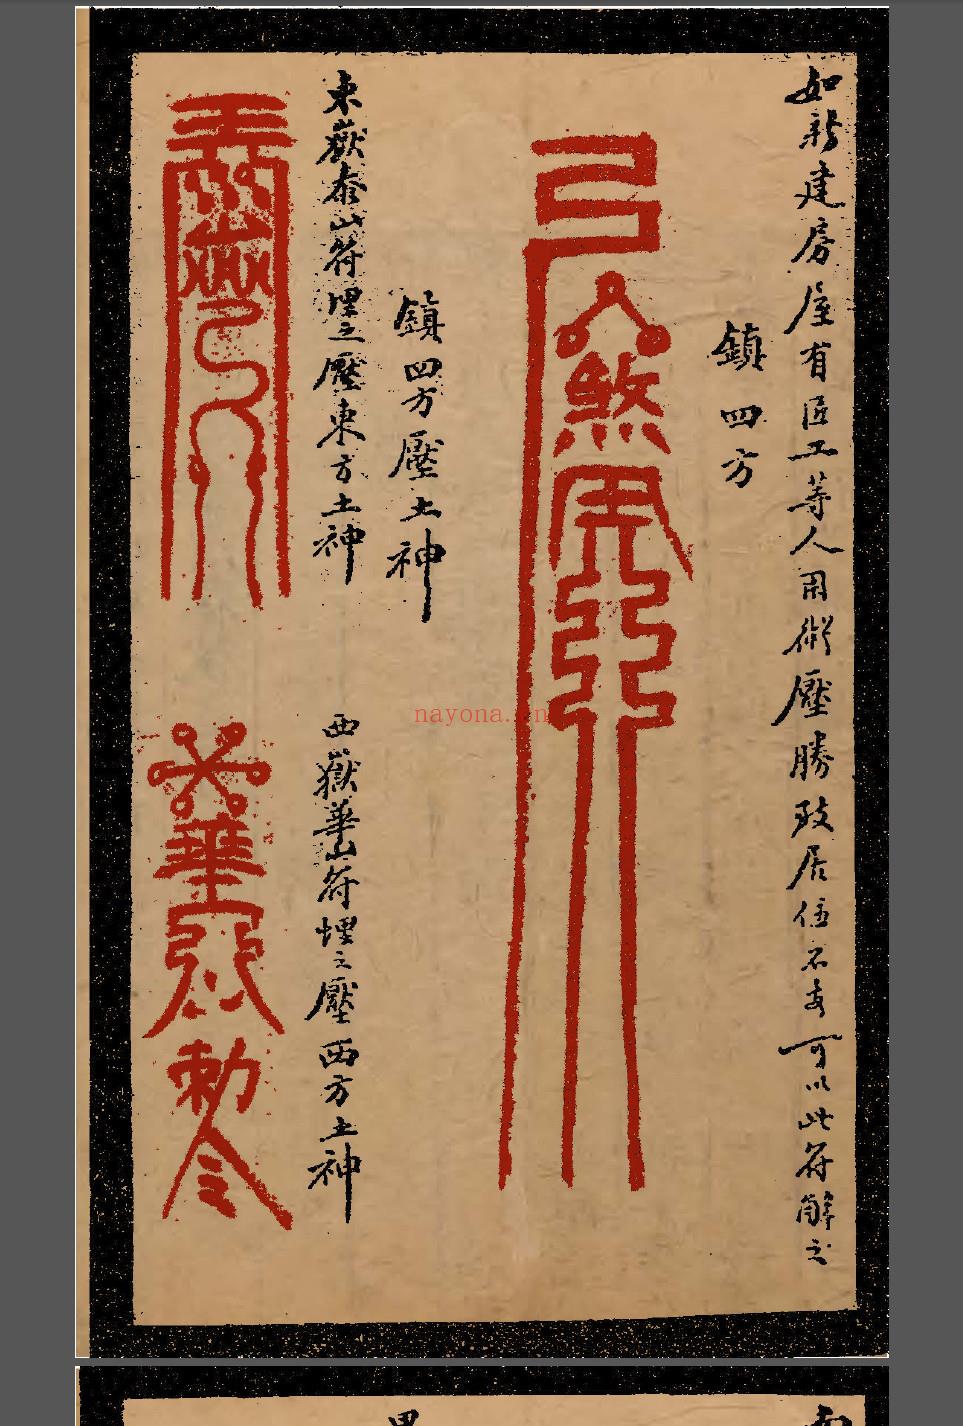 如新建房屋有匠工等人用術壓勝致居住不安可以此符解之
鎮四方
煞
鎮四方壓土神
東嶽泰山符埋之壓東方土神
西嶽華山符埋之壓西方土神
華
勅令
nayona.cn